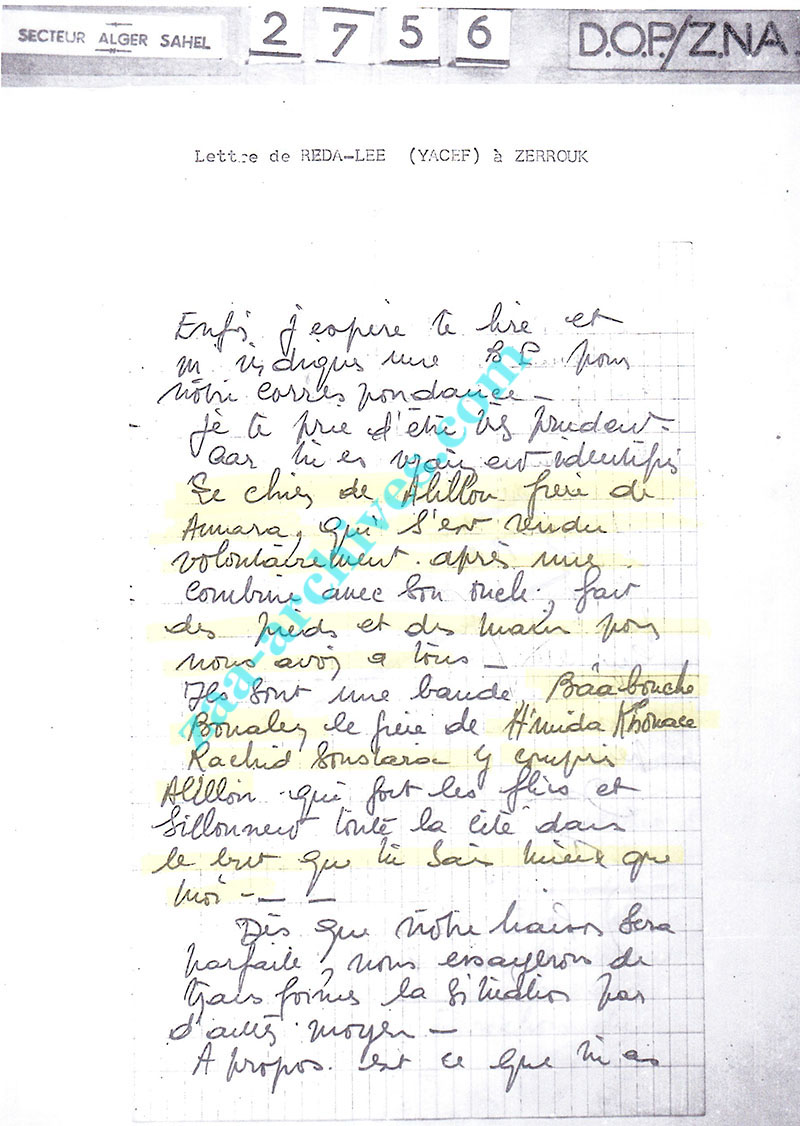 SECTEUR ALGER SAHEL
2 7 5 6
D.O.P./Z.N.A.
Lettre de REDA-LEE (YACEF) à ZERROUK
Enfin j'espère te lire et
m'indique une B P pour
nôtre correspondance —
Je te prie d'être très prudent -
Car tu es vraiment identifié
Le chien de Alillou frère de
Amara, qui s'est rendu
volontairement après une
combine avec son oncle, fait
des pieds et des mains pour
nous avoir a tous —
Ils sont une bande Bâa-bouche
Boualem le frère de H'mida Khouace
Rachid Soustara y compris
Alillou qui font les flics et
Sillonnent toute la cité dans
le but que tu sais mieux que
moi - — —
Dès que nôtre liaison sera
parfaite, nous essayerons de
transformer la situation par
d'autres moyen —
A propos est ce que tu as
zaa-archives.com